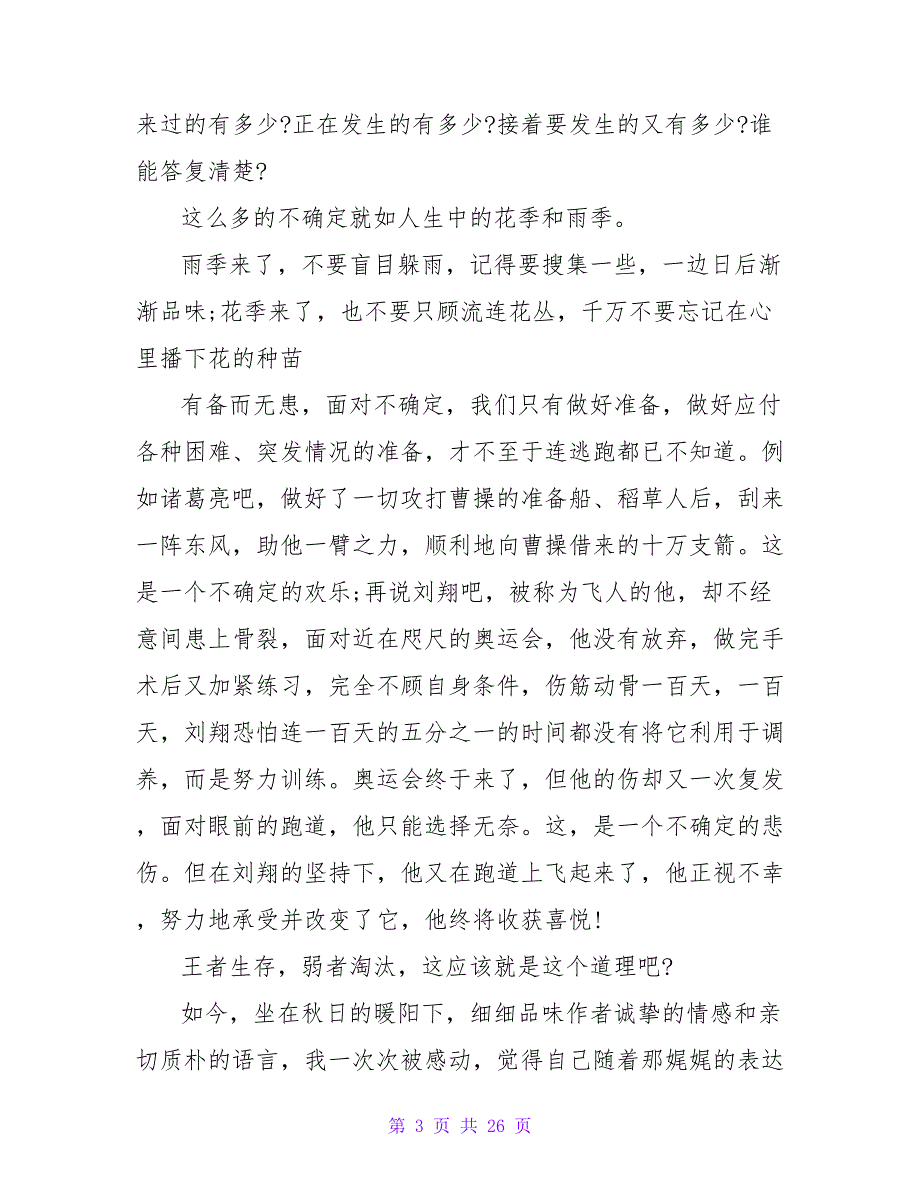 来过的有多少?正在发生的有多少?接着要发生的又有多少?谁
能答复清楚?
这么多的不确定就如人生中的花季和雨季。
雨季来了，不要盲目躲雨，记得要搜集一些，一边日后渐
渐品味;花季来了，也不要只顾流连花丛，千万不要忘记在心
里播下花的种苗
有备而无患，面对不确定，我们只有做好准备，做好应付
各种困难、突发情况的准备，才不至于连逃跑都已不知道。例
如诸葛亮吧，做好了一切攻打曹操的准备船、稻草人后，刮来
一阵东风，助他一臂之力，顺利地向曹操借来的十万支箭。这
是一个不确定的欢乐;再说刘翔吧，被称为飞人的他，却不经
意间患上骨裂，面对近在咫尺的奥运会，他没有放弃，做完手
术后又加紧练习，完全不顾自身条件，伤筋动骨一百天，一百
天，刘翔恐怕连一百天的五分之一的时间都没有将它利用于调
养，而是努力训练。奥运会终于来了，但他的伤却又一次复发
，面对眼前的跑道，他只能选择无奈。这，是一个不确定的悲
伤。但在刘翔的坚持下，他又在跑道上飞起来了，他正视不幸
，努力地承受并改变了它，他终将收获喜悦!
王者生存，弱者淘汰，这应该就是这个道理吧?
如今，坐在秋日的暖阳下，细细品味作者诚挚的情感和亲
切质朴的语言，我一次次被感动，觉得自己随着那娓娓的表达
第 3 页 共 26 页